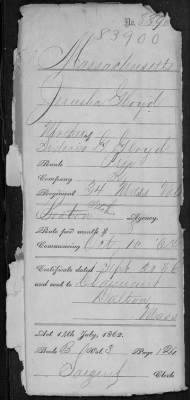 No. 83900
83900
Massachusetts
Jerusha Gloyd
Mother of
Federic G. Gloyd
Rank
Company
Regiment 34 Mass Vols
Boston Agency.
Rate per month, 8
Commencing Oct, 10 '64
Certificate dated Sept 20 '66
and sent to Claimant
Dalton
Mass
Act 14th July, 1862.
Book B Vol 3 Page 120
Sargent Clerk